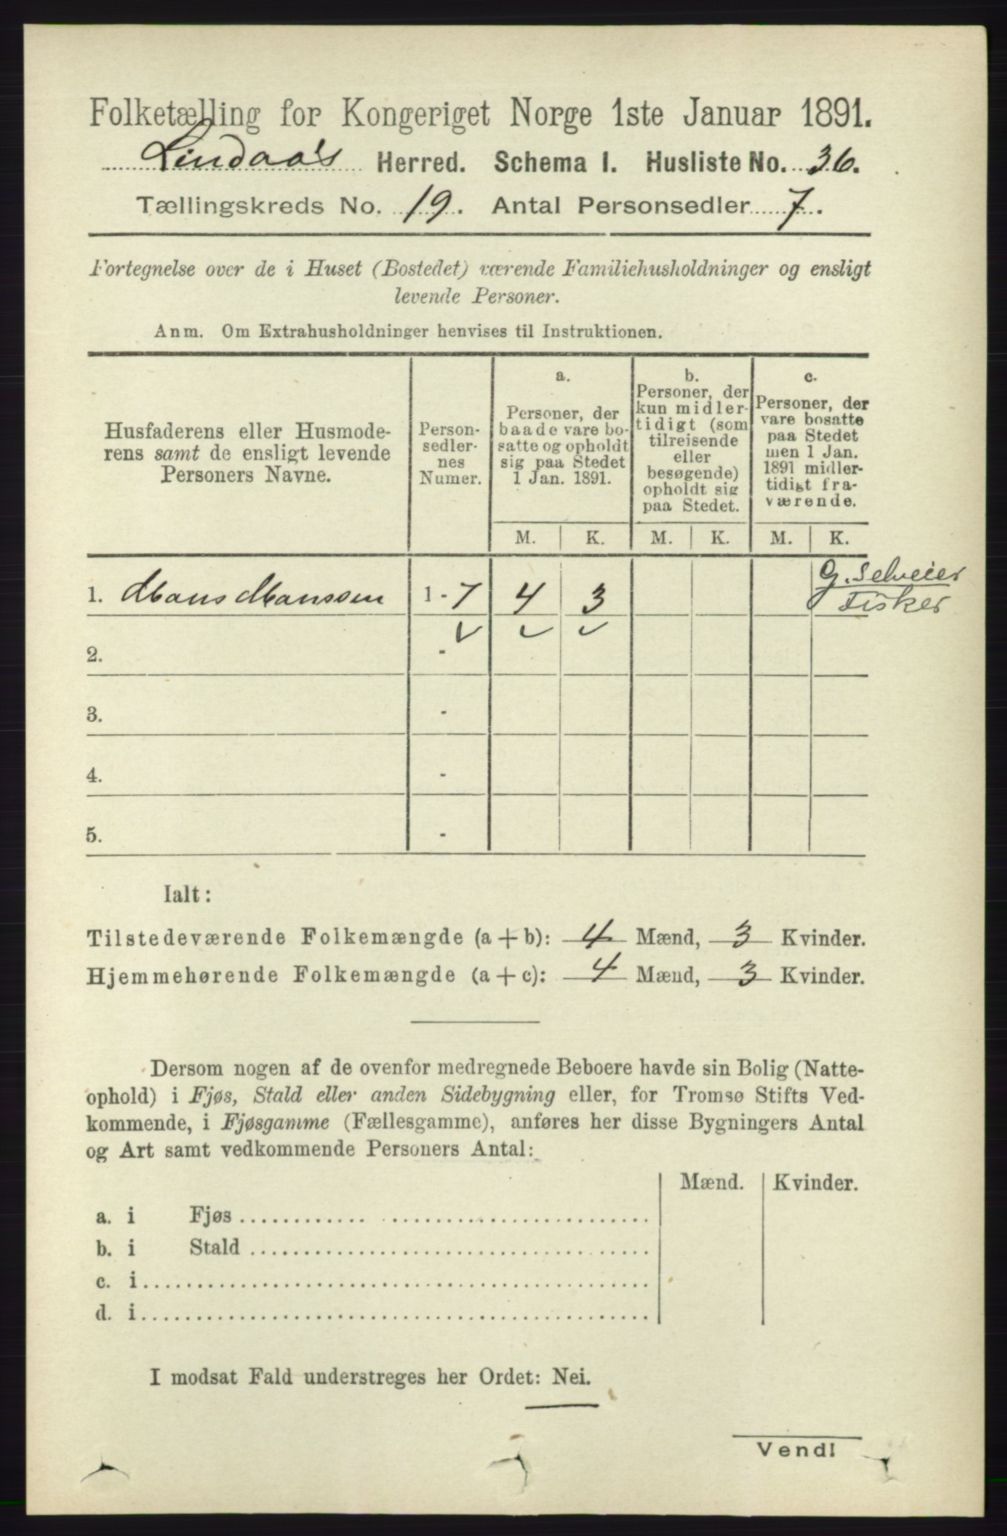 Folketælling for Kongeriget Norge 1ste Januar 1891.
Lindaa's Herred. Schema I. Husliste No. 36.
Tællingskreds No. 19. Antal Personsedler 7.
Fortegnelse over de i Huset (Bostedet) værende Familiehusholdninger og ensligt
levende Personer.
Anm. Om Extrahusholdninger henvises til Instruktionen.
Husfaderens eller Husmode-
rens samt de ensligt levende
Personers Navne.
Person-
sedler-
nes
Numer.
a.
Personer, der
baade vare bo-
satte og opholdt
sig paa Stedet
1 Jan. 1891.
b.
Personer, der
kun midler-
tidigt (som
tilreisende
eller
besøgende)
opholdt sig
paa Stedet.
c.
Personer, der
vare bosatte
paa Stedet
men 1 Jan.
1891 midler-
tidigt fra-
værende.
M. K. M. K. M. K.
1. Mons Monssen 1 - 7 4 3 G. Selveier
Fisker
2. -
3. -
4. -
5. -
Ialt:
Tilstedeværende Folkemængde (a + b): 4 Mænd, 3 Kvinder.
Hjemmehørende Folkemængde (a + c): 4 Mænd, 3 Kvinder.
Dersom nogen af de ovenfor medregnede Beboere havde sin Bolig (Natte-
ophold) i Fjøs, Stald eller anden Sidebygning eller, for Tromsø Stifts Ved-
kommende, i Fjøsgamme (Fællesgamme), anføres her disse Bygningers Antal
og Art samt vedkommende Personers Antal:
Mænd. Kvinder.
a. i Fjøs
b. i Stald
c. i
d. i
I modsat Fald understreges her Ordet: Nei.
Vend!